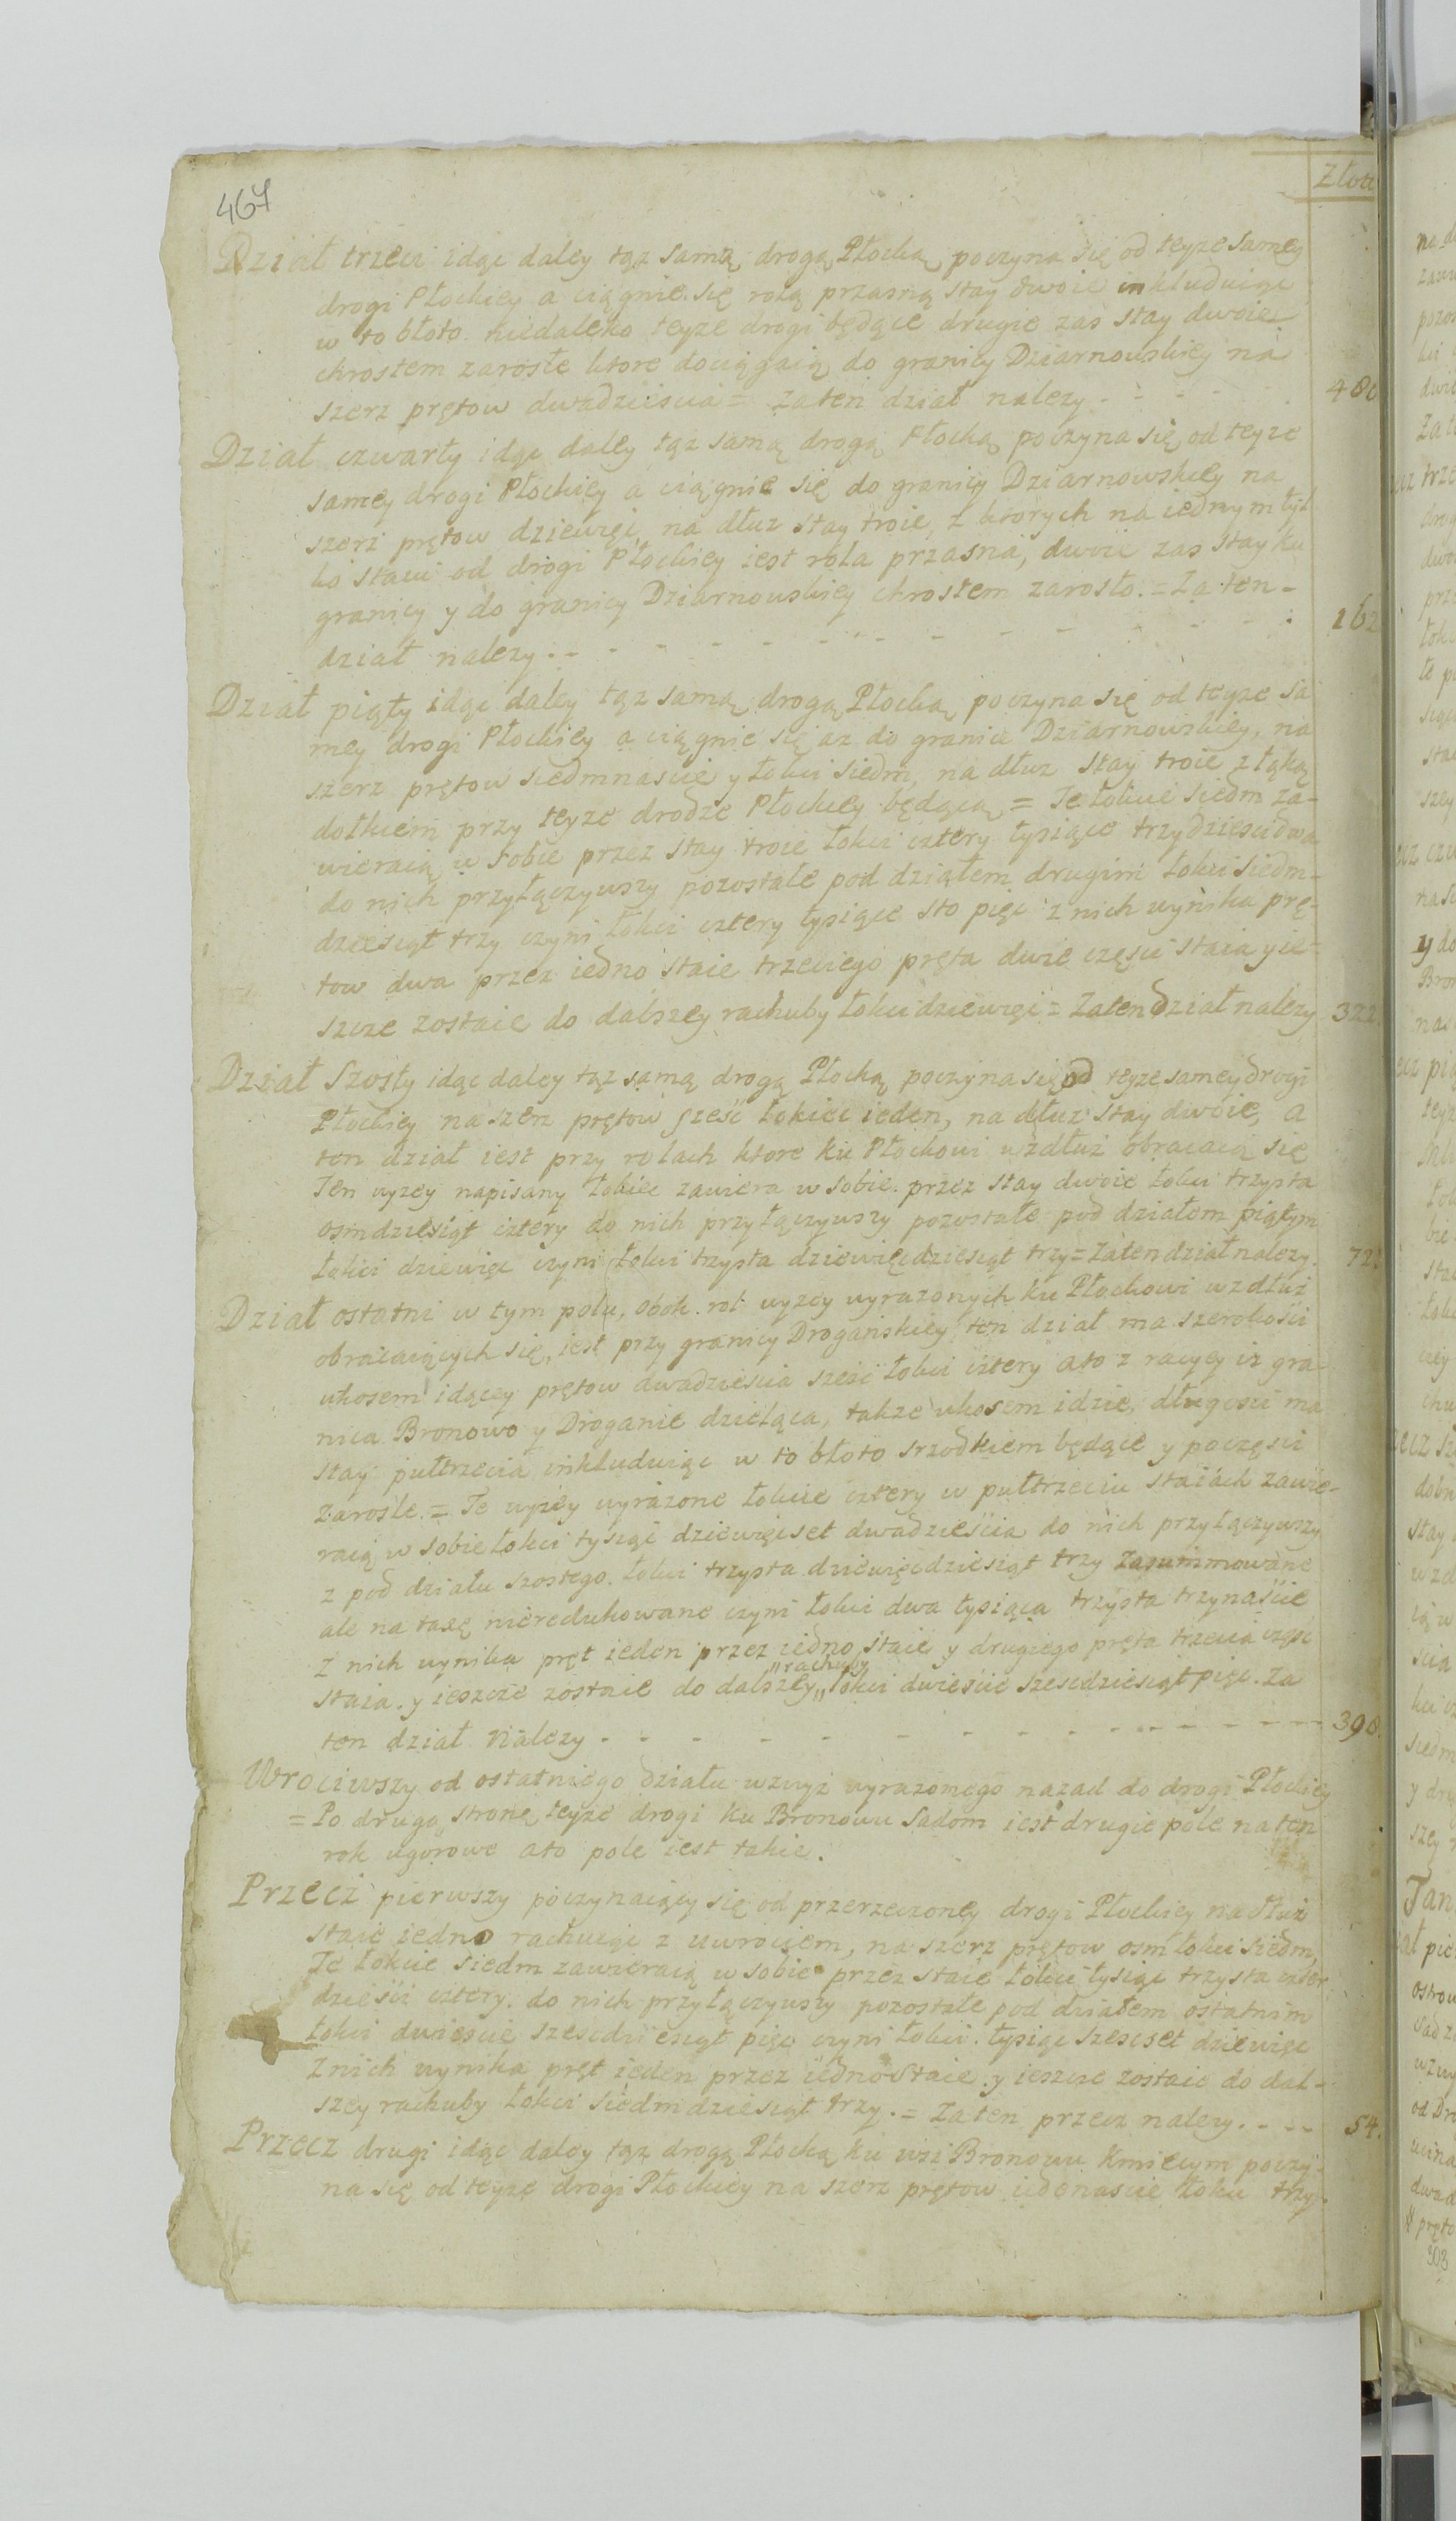 467
Złote
Dział trzeci idąc daley tąz samą drogą Płocką poczyna się od teyze samey
drogi Płockiey a ciągnie się rolą przasną stay dwoie inkluduiąc
w to błoto niedaleko teyze drogi będące drugie zas stay dwoie
chrostem zarosłe ktore dociągaią do granicy Dziarnowskiey na
szerz prętow dwadziescia = Za ten dział nalezy - - - - 480
Dział czwarty idąc daley tąz samą drogą Płocką poczyna się od teyze
samey drogi Płockiey a ciągnie się do granicy Dziarnowskiey na
szerz prętow dziewięc, na dłuz stay troie, z ktorych na iednym tyl
ko staiu od drogi Płockiey iest rola przasna, dwoie zas stay ku
granicy y do granicy Dziarnowskiey chrostem zarosło. = Za ten -
dział nalezy - - - - - - - - - - - 162
Dział piąty idąc daley tąz samą drogą Płocką poczyna się od teyze sa
mey drogi Płockiey a ciągnie się az do granic Dziarnowskiey, na
szerz prętow siedmnascie y łokci siedm, na dłuz stay troie z łąką
dołkiem przy teyze drodze Płockiey będącą = Te łokcie siedm za-
wieraią w sobie przez stay troie łokci cztery tysiące trzydziesci dwa
do nich przyłączywszy pozostałe pod działem drugim łokci siedm-
dziesiąt trzy czyni łokci cztery tysiące sto pięc z nich wynika prę-
tow dwa przez iedno staie trzeciego pręta dwie częsci staia y ie-
szcze zostaie do dalszey rachuby łokci dziewięc = Za ten dział nalezy 322.
Dział Szosty idąc daley tąz samą drogą Płocką poczyna się od teyze samey drogi
Płockiey na szerz prętow szesc łokiec ieden, na dłuz stay dwoie, a
ten dział iest przy rolach ktore ku Płockowi wzdłuz obracaią się
Ten wyzey napisany łokiec zawiera w sobie przez stay dwoie łokci trzysta
osmdziesiąt cztery do nich przyłączywszy pozostałe pod działem piątym
łokci dziewięc czyni łokci trzysta dziewięcdziesiąt trzy = Za ten dział nalezy. 72
Dział ostatni w tym polu, obok rol wyzey wyrazonych ku Płockowi wzdłuz
obracaiących się, iest przy granicy Drogańskiey, ten dział ma szerokosci
ukosem idącey prętow dwadziescia szesc łokci cztery a to z racyey iz gra-
nica Bronowo y Droganie dzieląca, takze ukosem idzie, długosci ma
stay pułtrzecia inkluduiąc w to błoto srzodkiem będące y poczęsci
zarosle. = Te wyzey wyrazone łokcie cztery w pułtrzeciu staiach zawie-
raią w sobie łokci tysiąc dziewięcset dwadziescia do nich przyłączywszy
z pod działu szostego łokci trzysta dziewięcdziesiąt trzy zasummowane
ale na taxę nieredukowane czyni łokci dwa tysiąca trzysta trzynascie
z nich wynika pręt ieden przez iedno staie y drugiego pręta trzecia częsc
staia. y ieszcze zostaie do dalszey "rachuby" łokci dwiescie szescdziesiąt pięc. Za
ten dział nalezy - - - - - - - - - - - 390.
Wrociwszy od ostatniego działu wzwyz wyrazonego nazad do drogi Płockiey
= Po drugą stronę teyze drogi ku Bronowu Sadom iest drugie pole na ten
rok ugorowe a to pole iest takie.
Przecz pierwszy poczynaiący się od przerzeczoney drogi Płockiey na dłuz
staie iedno rachuiąc z uwrociem, na szerz prętow osm łokci siedm,
Te łokcie siedm zawieraią w sobie przez staie łokci tysiąc trzysta czter
dziesci cztery. do nich przyłączywszy pozostałe pod działem ostatnim
łokci dwiescie szescdziesiąt pięc czyni łokci tysiąc szescset dziewięc
z nich wynika pręt ieden przez iedno staie y ieszcze zostaie do dal-
szey rachuby łokci siedmdziesiąt trzy. = Za ten przecz nalezy. - - - 54.
Przecz drugi idąc daley tąz drogą Płocką ku wsi Bronowu Kmiecym poczy-
na się od teyze drogi Płockiey na szerz prętow iedenascie łokci trzy.